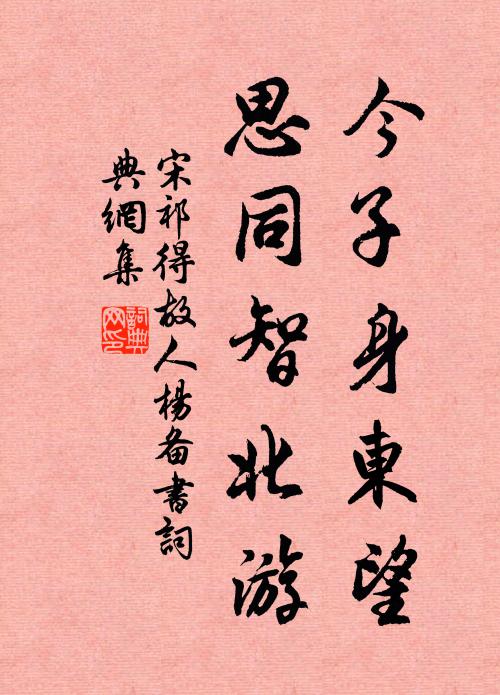 今子身東望
思同智北游
宋祁得故人楊备書詞
典網集
詞典
网印